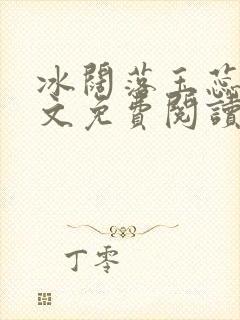 冰闊落玉蕊
文免費閱讀
丁零